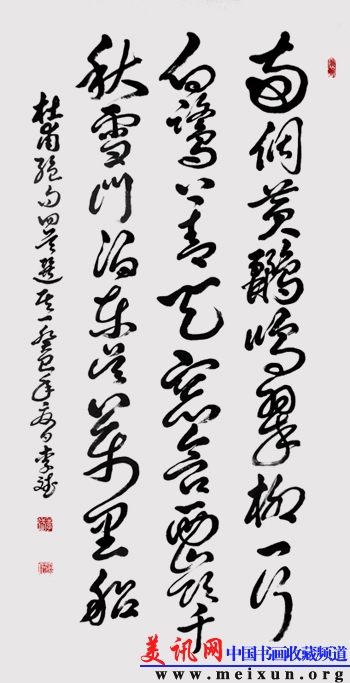 两個黄鸝鳴翠柳一行
白鷺上青天窗含西嶺千
秋雪門泊東吳萬里船
杜甫絕句四首選其一癸巳年夏日李斌
美讯网 中国书画收藏频道
www.meixun.org